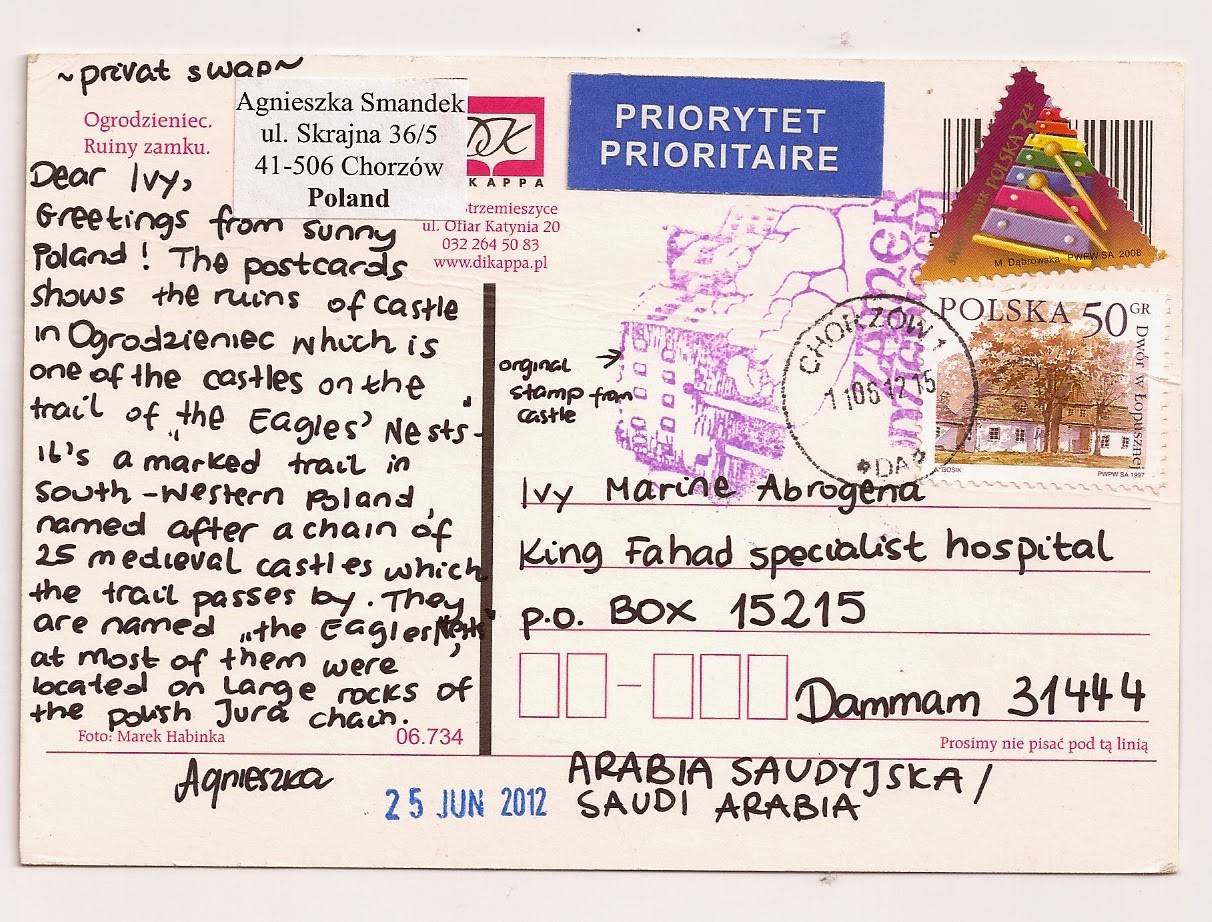 ~privat swap~
Ogrodzieniec.
Ruiny zamku.
Agnieszka Smandek
ul. Skrajna 36/5
41-506 Chorzów
Poland
DK
KAPPA
Strzemieszyce
ul. Ofiar Katynia 20
032 264 50 83
www.dikappa.pl
PRIORYTET
PRIORITAIRE
POLSKA 3 ZŁ
M. Dąbrowska PWPW SA 2008
POLSKA 50 GR
Dwór w Łopusznej
PWPW SA 1997
CHORZÓW 1
110612 15
Dear Ivy,
Greetings from sunny
Poland! The postcards
shows the ruins of castle
in Ogrodzieniec which is
one of the castles on the
trail of the Eagles' Nests-
it's a marked trail in
south-western poland,
named after a chain of
25 medieval castles which
the trail passes by. They
are named „the Eagles Nests"
at most of them were
located on large rocks of
the polish Jura chain.
Foto: Marek Habinka
06.734
Agnieszka
orginal
stamp from
castle
Ivy Marine Abrogena
King Fahad specialist hospital
p.o. BOX 15215
Dammam 31444
Prosimy nie pisać pod tą linią
ARABIA SAUDYJSKA /
SAUDI ARABIA
25 JUN 2012